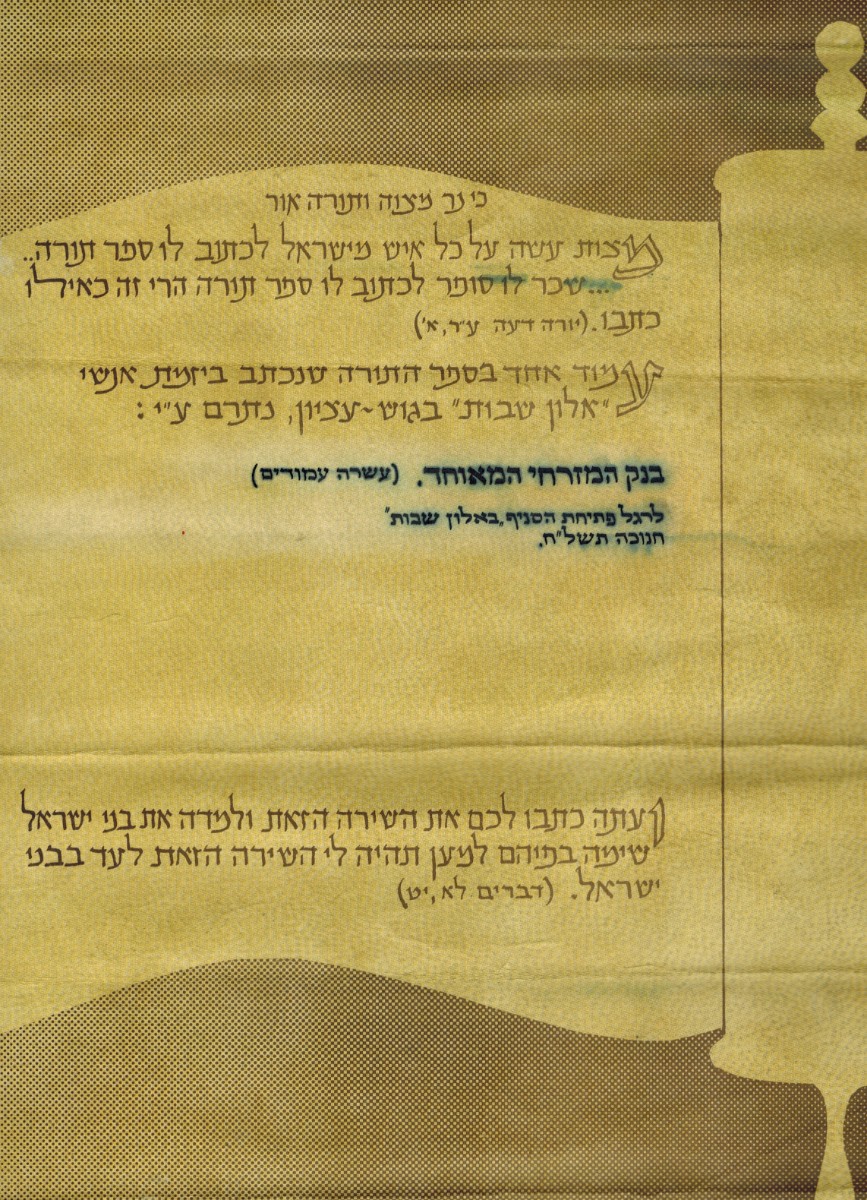 כי נר מצוה ותורה אור
מצות עשה על כל איש מישראל לכתוב לו ספר תורה..
...שכר לו סופר לכתוב לו ספר תורה הרי זה כאילו
כתבו. (יורה דעה ע״ר, א׳)
עמוד אחד בספר התורה שנכתב ביזמת אנשי
"אלון שבות" בגוש-עציון, נתרם ע״י:
בנק המזרחי המאוחד. (עשרה עמודים)
לרגל פתיחת הסניף "באלון שבות"
חנוכה תשל"ח.
ועתה כתבו לכם את השירה הזאת ולמדה את בני ישראל
שימה בפיהם למען תהיה לי השירה הזאת לעד בבני
ישראל. (דברים לא, יט)